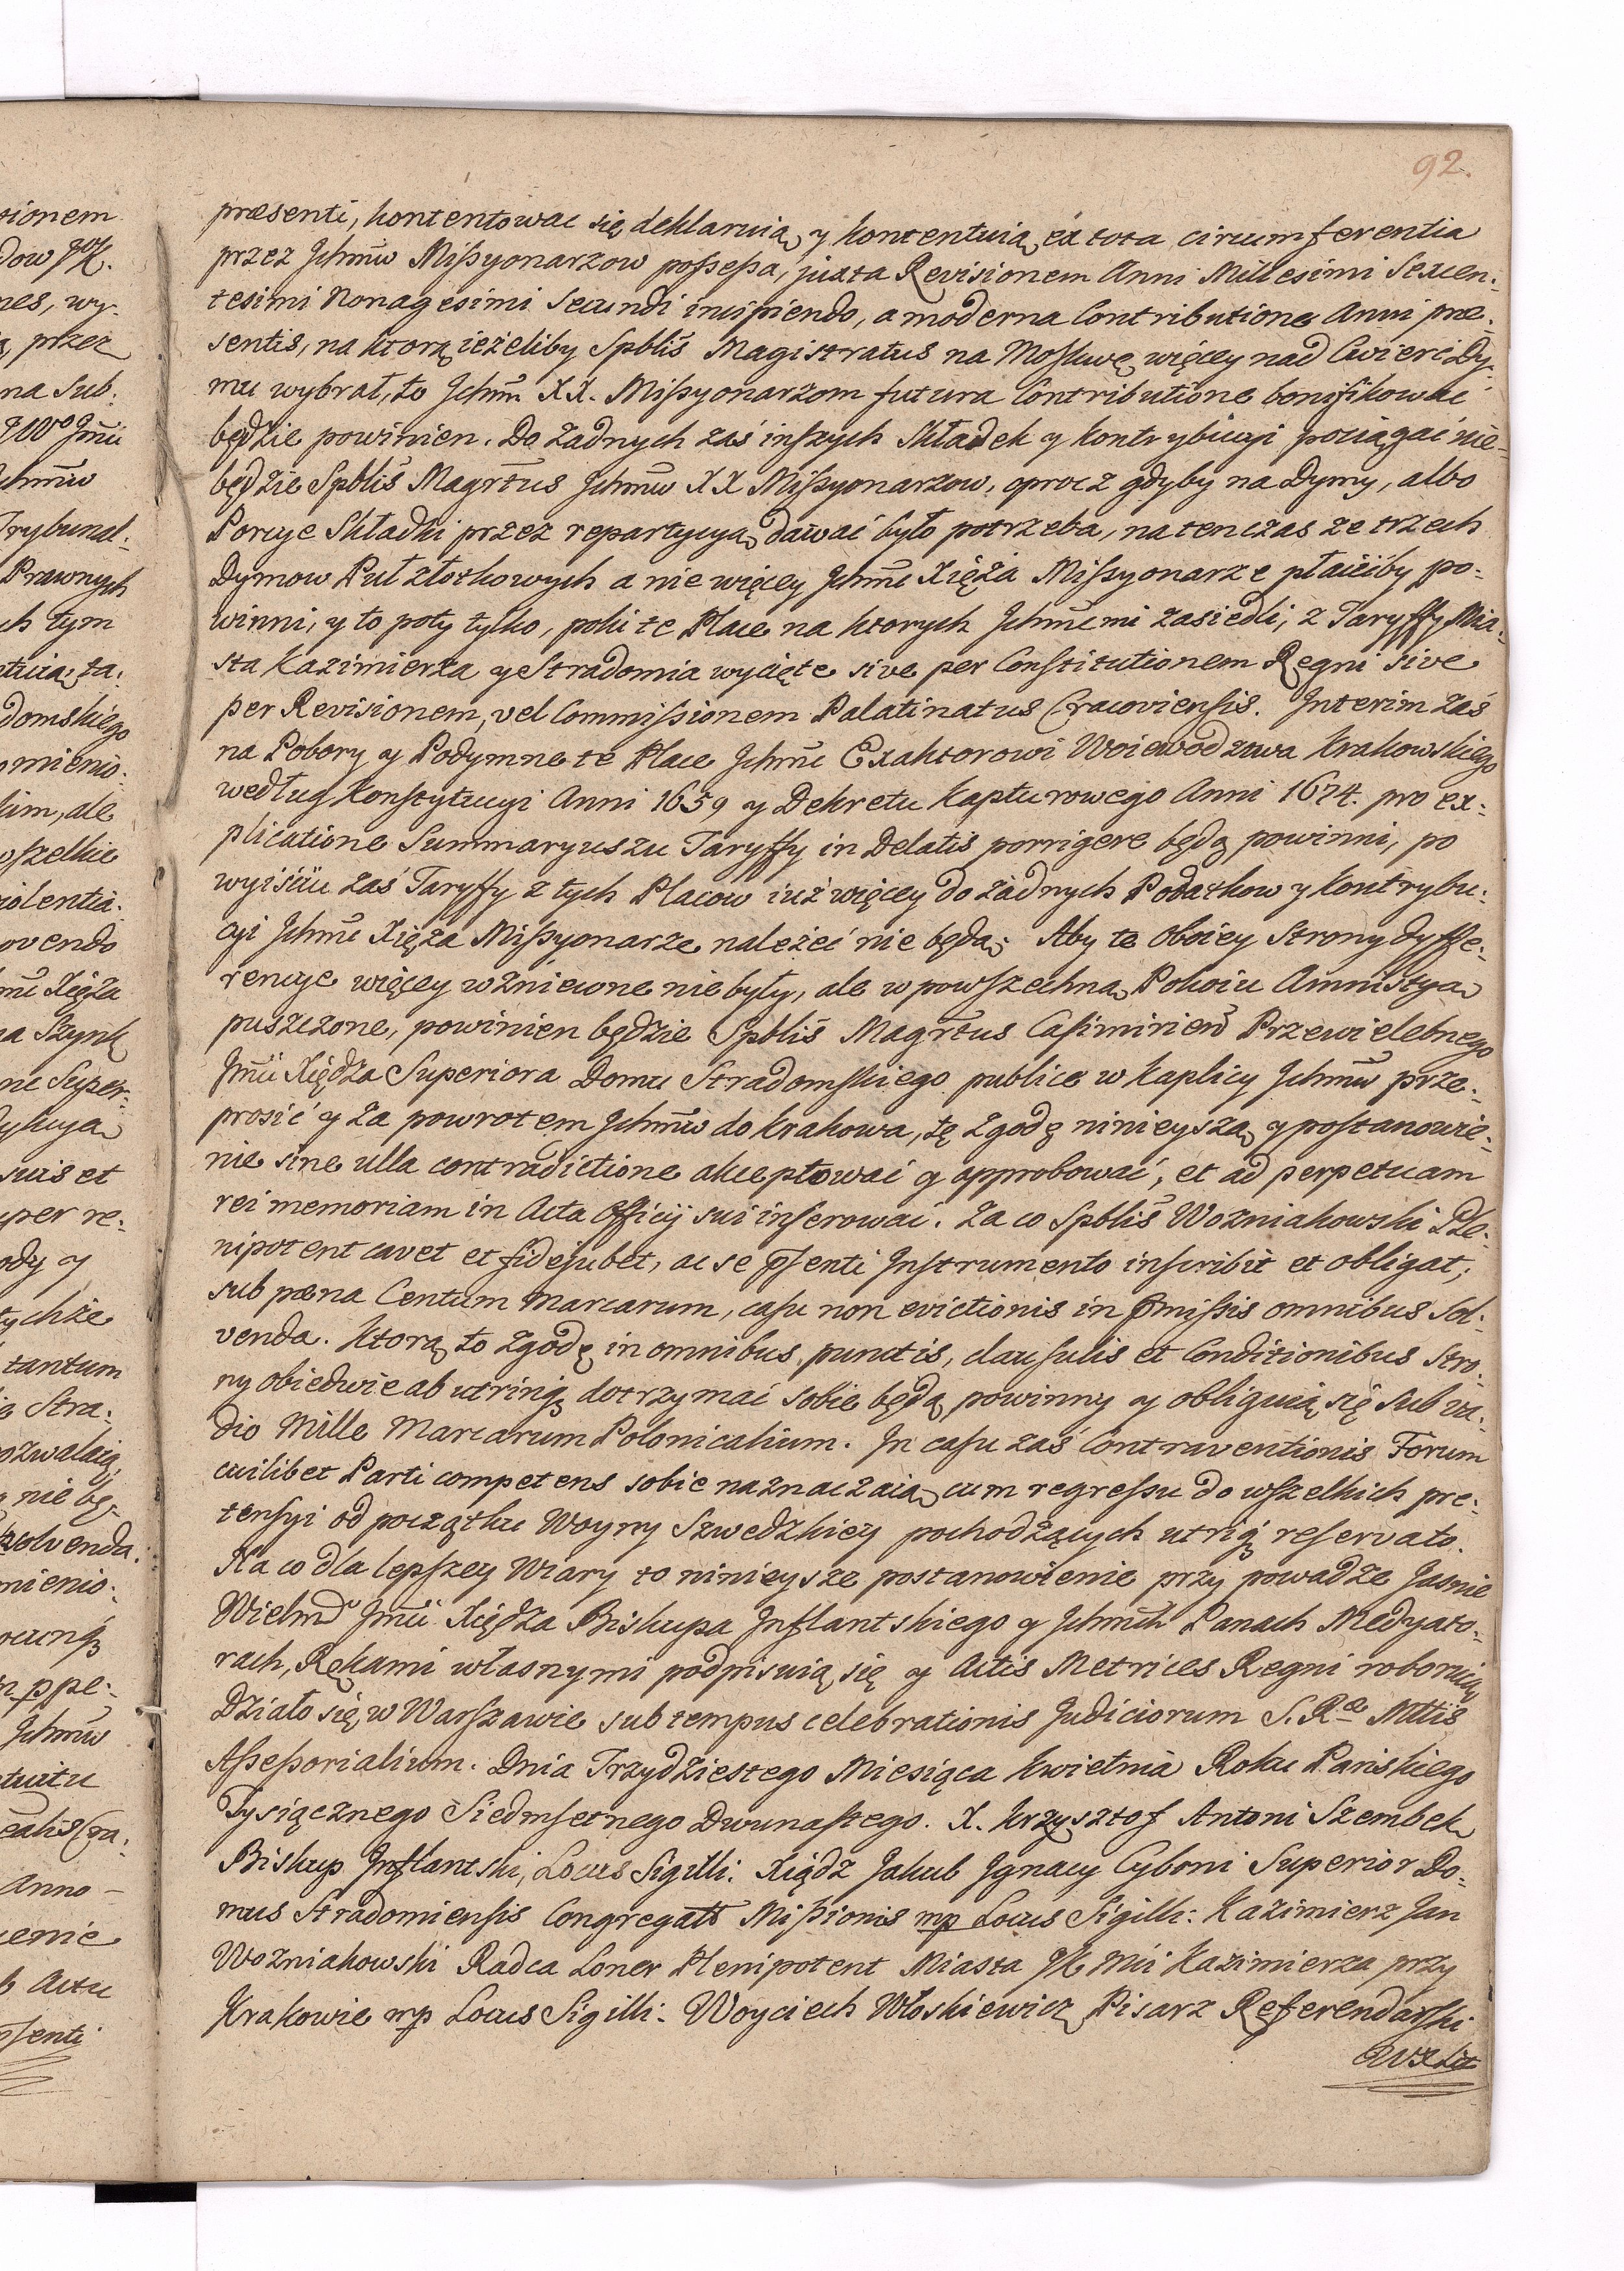 92.
præsenti, kontentować się deklaruią y kontentuią ex tota circumferentia
przez Jchmw Missyonarzow possessa, juxta Revisionem Anni Millesimi Sexcen:
tesimi Nonagesimi Secundi incipiendo, a moderna Contributione Anni præ:
sentis, na ktorą ieżeliby Spblis Magistratus na Moskwę więcey nad Cwierć Dy:
mu wybrał, to Jchm XX. Missyonarzom futura Contributione bonifikować
będzie powinien. Do żadnych zaś inszych Składek y kontrybucyi pociągać nie-
będzie Spblis Magrtus Jchmw XX Missyonarzow, oprocz gdyby na Dymy, albo
Porcye Składki przez repartycyą dawać było potrzeba, natenczas ze trzech
Dymow Puł złotkowych a nie więcey Jchmc Xięża Missyonarze płacićby po:
winni, y to poty tylko, poki te Place na ktorych Jchmcmi zasiedli, z Taryffy Mia:
sta Kazimierza y Stradomia wycięte sive per Constitutionem Regni sive
per Revisionem, vel Commissionem Palatinatus Cracoviensis. Interim zaś
na Pobory y Podymne te Place Jchmc Exaktorowi Woiewodzwa Krakowskiego
według Konstytucyi Anni 1659 y Dekretu Kapturowego Anni 1674. pro ex:
plicatione Summaryuszu Taryffy in Delatis porrigere będą powinni, po
wyiściu zaś Taryffy z tych Placow iuż więcey do żadnych Podatkow y Kontrybu:
cyi Jchmc Xięża Missyonarze należeć nie będą: Aby te Oboiey Strony dyffe:
rencye więcey wzniecone nie były, ale w powszechną Pokoiu Amnistyą
puszczone, powinien będzie Spblis Magrtus Casimirien Przewielebnego
Jmci Xiędza Superiora Domu Stradomskiego publice w Kaplicy Jchmw prze:
prosić y za powrotem Jchmw do Krakowa, tę zgodę ninieyszą y postanowie:
nie sine ulla contradictione akceptować y approbować, et ad perpetuam
rei memoriam in Acta Officij sui inserować. Za co Spblis Wozniakowski Ple:
nipotent cavet et fidejubet, ac se psenti Instrumento inscribit et obligat,
sub pæna Centum Marcarum, casu non evictionis in pmissis omnibus sol:
venda. Ktorą to zgodę in omnibus punctis, clausulis et Conditionibus Stro:
ny obiedwie ab utrinq dotrzymać sobie będą powinny y obliguią się sub va:
dio Mille Marcarum Polonicalium. In casu zaś Contraventionis Forum
cuilibet Parti competens sobie naznaczaią cum regressu do wszelkich pre:
tensyi od początku Woyny Szwedzkiey pochodzących utriq reservato.
Na co dla lepszey Wiary to ninieysze postanowienie przy powadze Jasnie
Wielm Jmci Xiędza Biskupa Inflantskiego y Jchmch Panach Medyato:
rach, Rękami własnymi podpisuią się y Actis Metrices Regni roboruią
Działo się w Warszawie sub tempus celebrationis Judiciorum S. Ræ Mttis
Assessorialium. Dnia Trzydziestego Miesiąca Kwietnia Roku Pańskiego
Tysiącznego Siedmsetnego Dwunastego. X. Krzysztof Antoni Szembek
Biskup Inflantski, Locus Sigilli: Xiądz Jakub Ignacy Cyboni Superior Do:
mus Stradomiensis Congregatt Missionis mp Locus Sigilli: Kazimierz Jan
Wozniakowski Radca Loner Plenipotent Miasta JK Mci Kazimierza przy
Krakowie mp Locus Sigilli: Woyciech Włoskiewicz Pisarz Referendarski